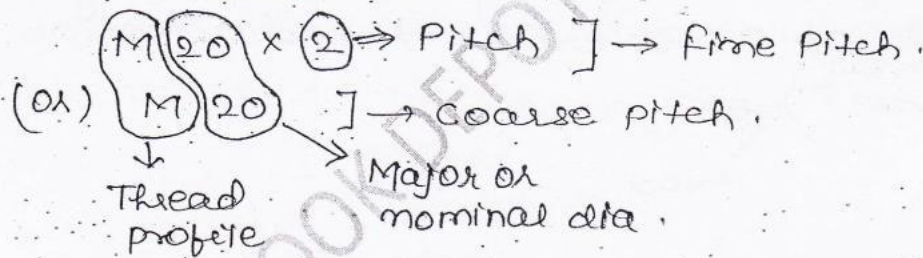 M 20 × 2 ⇒ Pitch ] → fine Pitch.
(or) M 20 ] → Coarse pitch.
Thread profile
Major or nominal dia.
BOOK DEPOT